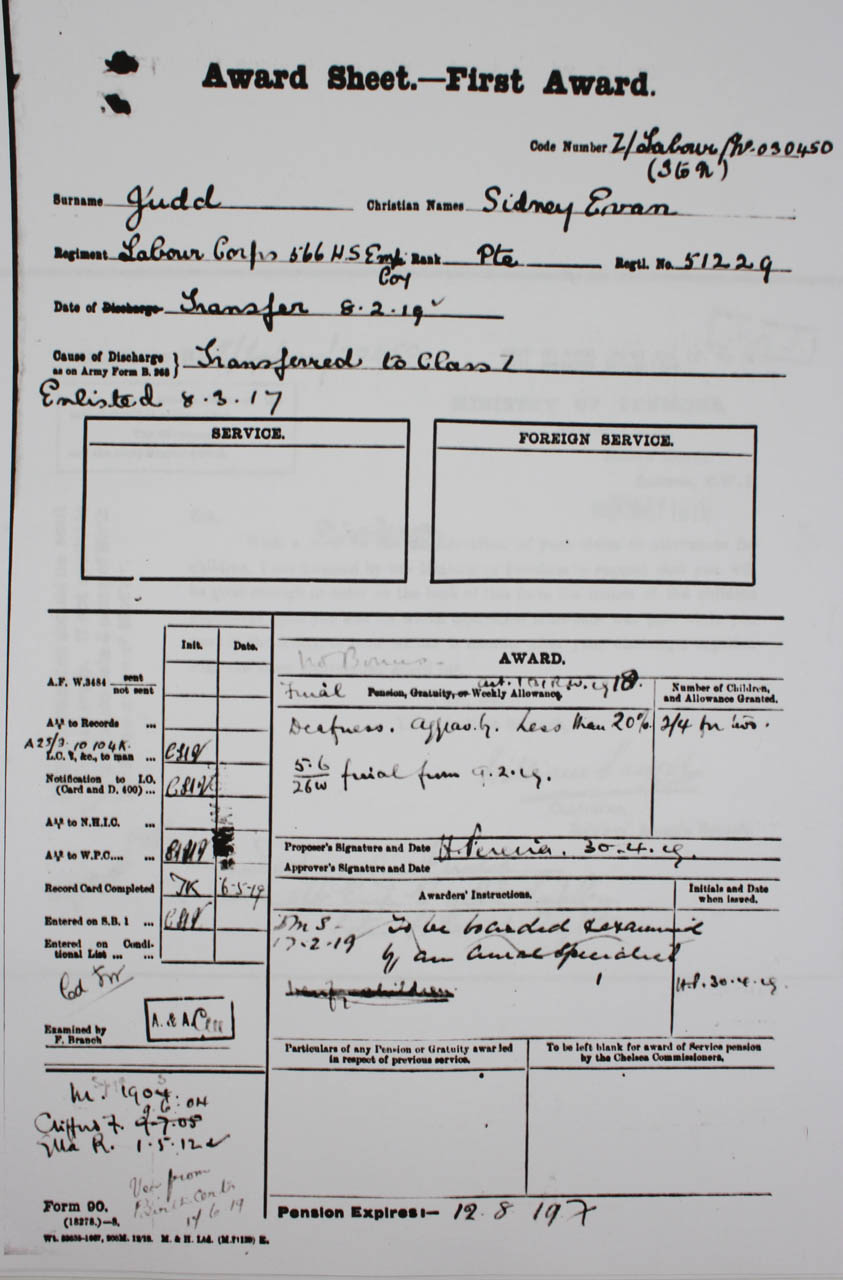 Award Sheet.—First Award.
Code Number Z/Labour/No.030450
Surname Judd Christian Names Sidney Evan
Regiment Labour Corps 566 H.S Emp Coy Rank Pte Regtl. No. 51229
Date of Discharge Transfer 8.2.19
Cause of Discharge as on Army Form B. 268 } Transferred to Class Z
Enlisted 8.3.17
SERVICE.
FOREIGN SERVICE.
Init. Date.
No Bonus. AWARD.
A.F. W.3484 sent / not sent
Final Pension, Gratuity, or Weekly Allowance.
Number of Children, and Allowance Granted.
A/s to Records ...
Deafness. Aggrav. by. Less than 20%. 2/4 for two.
L.C. 2, &c., to man ...
Notification to I.O. (Card and D. 400) ...
5.6 / 26w final from 9.2.19.
A/s to N.H.I.C. ...
A/s to W.P.C. ...
Proposer's Signature and Date H. Pereira. 30.4.19.
Approver's Signature and Date
Record Card Completed JK 6-5-19
Awarders' Instructions. Initials and Date when issued.
Entered on S.B. 1 ...
DMS 17-2-19 To be boarded & examined
by an aural specialist
Entered on Conditional List ... ...
H.P. 30.4.19.
Examined by F. Branch
A. & A.
Particulars of any Pension or Gratuity awarded in respect of previous service.
To be left blank for award of Service pension by the Chelsea Commissioners.
M. 1904.
9.6.
9-7-05
Ella R. 1.5.12
Ver from
Birth Certs
17/6/19
Form 90.
Pension Expires:— 12.8.19
M. & H. Ltd.